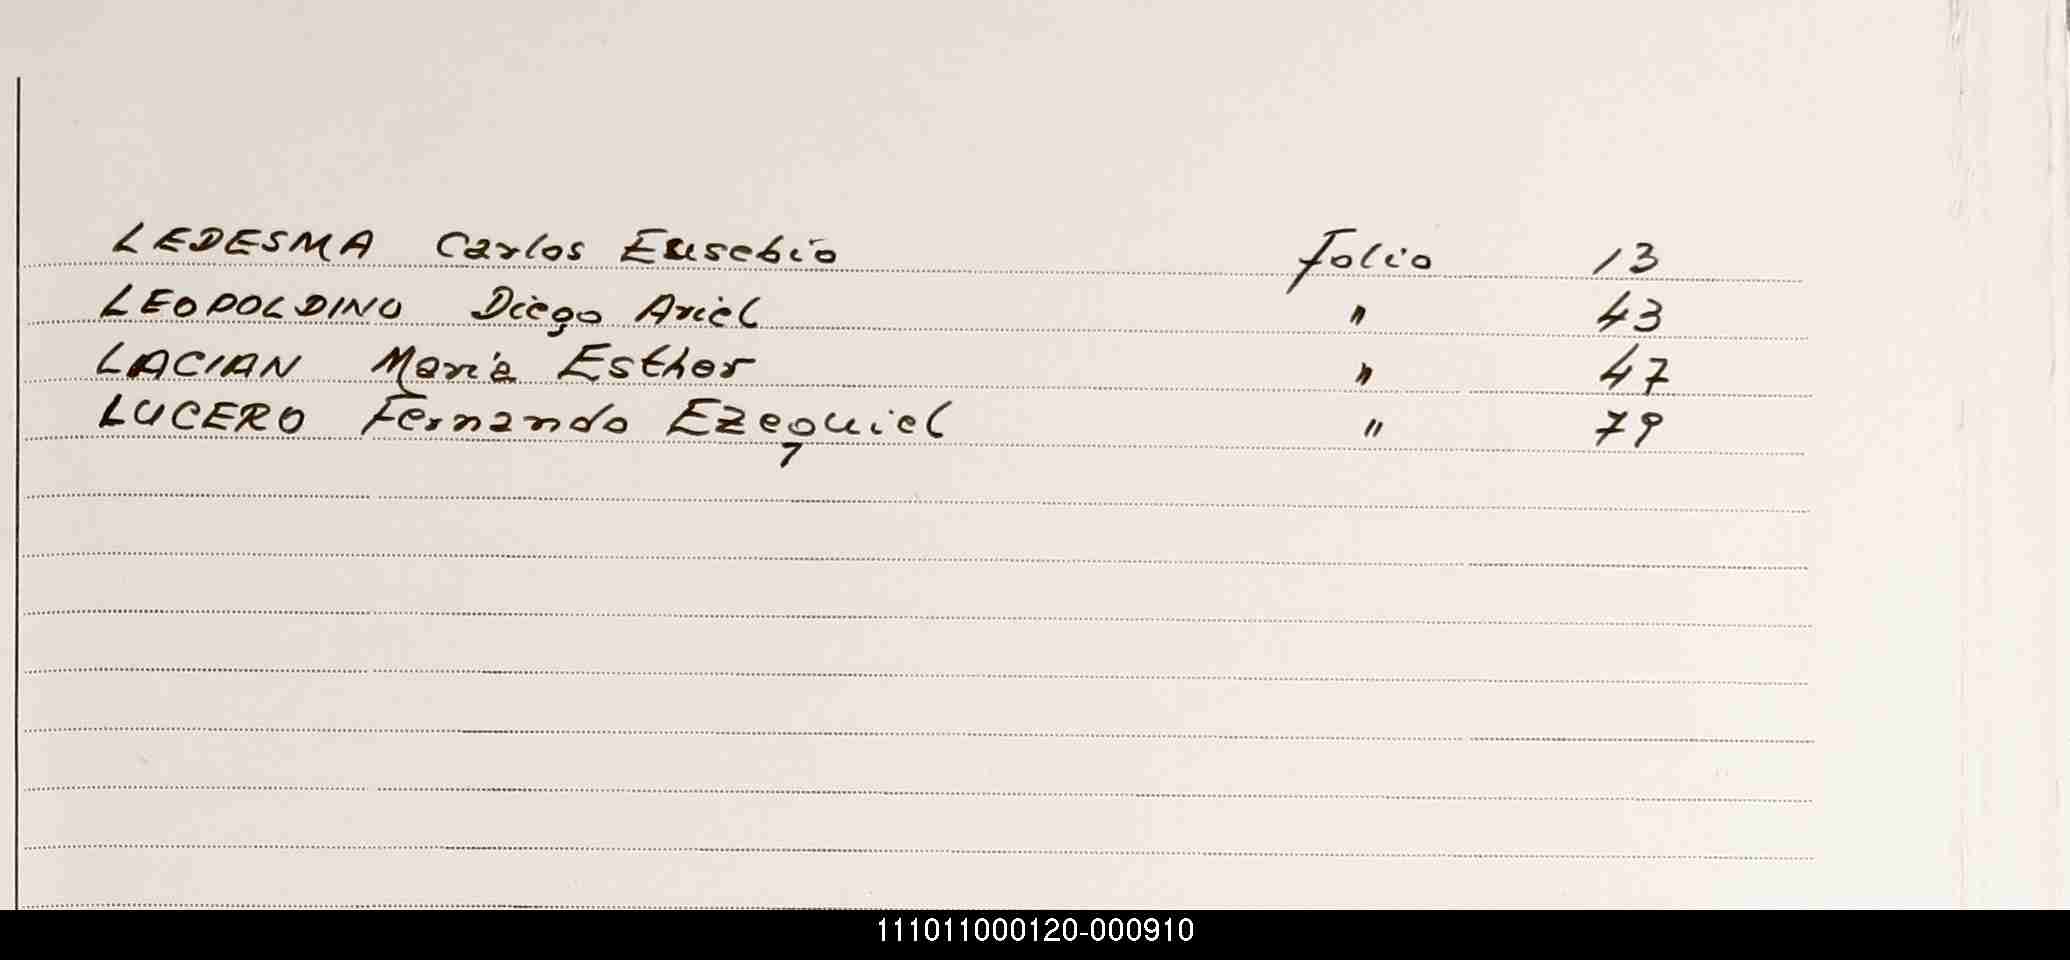 LEDESMA Carlos Eusebio Folio 13
LEOPOLDINO Diego Ariel " 43
LACIAN María Esther " 47
LUCERO Fernando Ezequiel " 79
111011000120-000910